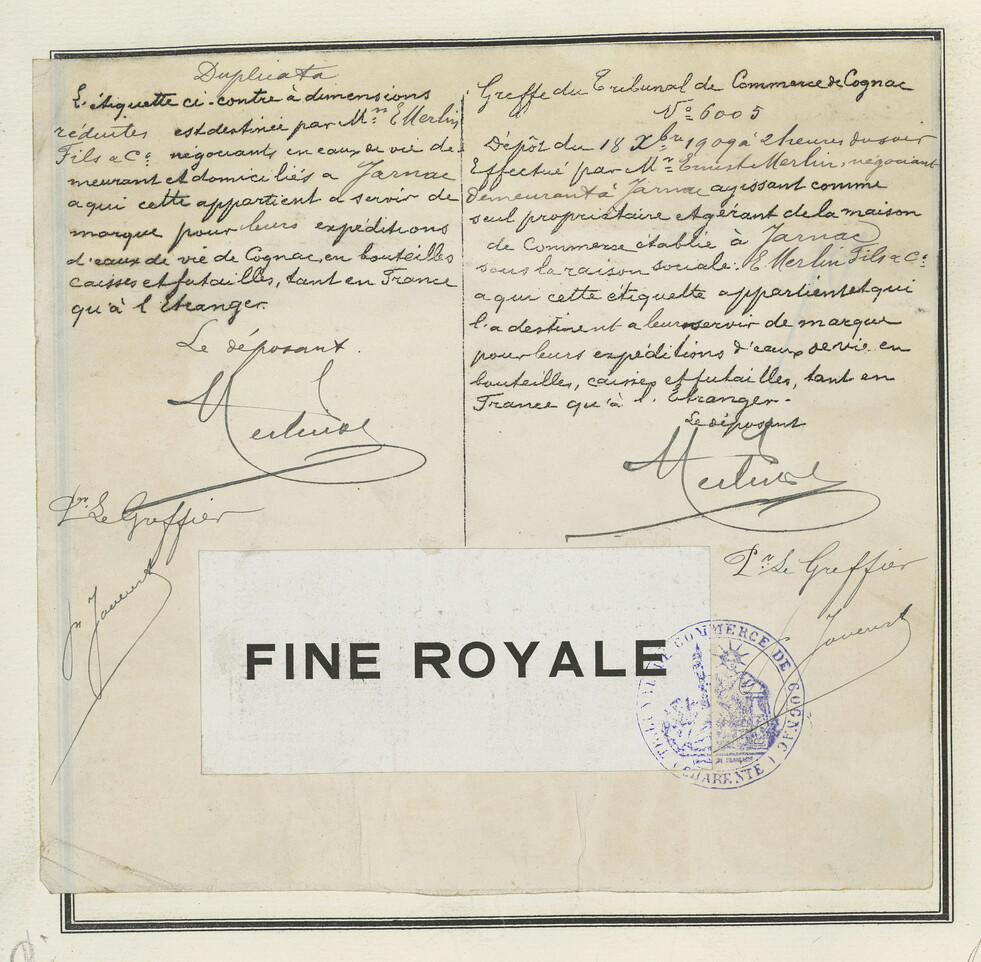 Duplicata
L'étiquette ci-contre à dimensions
réduites est destinée par Mrs E Merlin
Fils & Cie négociants en eaux de vie de
meurant et domiciliés a Jarnac
a qui cette appartient a servir de
marque pour leurs expéditions
d'eaux de vie de Cognac, en bouteilles
caisses et futailles, tant en France
qu'à l'Etranger.
Le déposant.
Merlin
Pr Le Greffier
Greffe du Tribunal de Commerce de Cognac
No 6005
Dépôt du 18 Xbre 1909 à 2 heures du soir
Effectué par Mr Ernest Merlin, négociant
demeurant à Jarnac agissant comme
seul propriétaire et gérant de la maison
de Commerce établie à Jarnac
sous la raison sociale: E. Merlin Fils & Cie
a qui cette étiquette appartient et qui
l'a destinent a leur servir de marque
pour leurs expéditions d'eaux de vie en
bouteilles, caisses et futailles, tant en
France qu'à l'Etranger.
Le déposant
Merlin
Pr Le Greffier
FINE ROYALE
TRIBUNAL DE COMMERCE DE COGNAC
(CHARENTE)